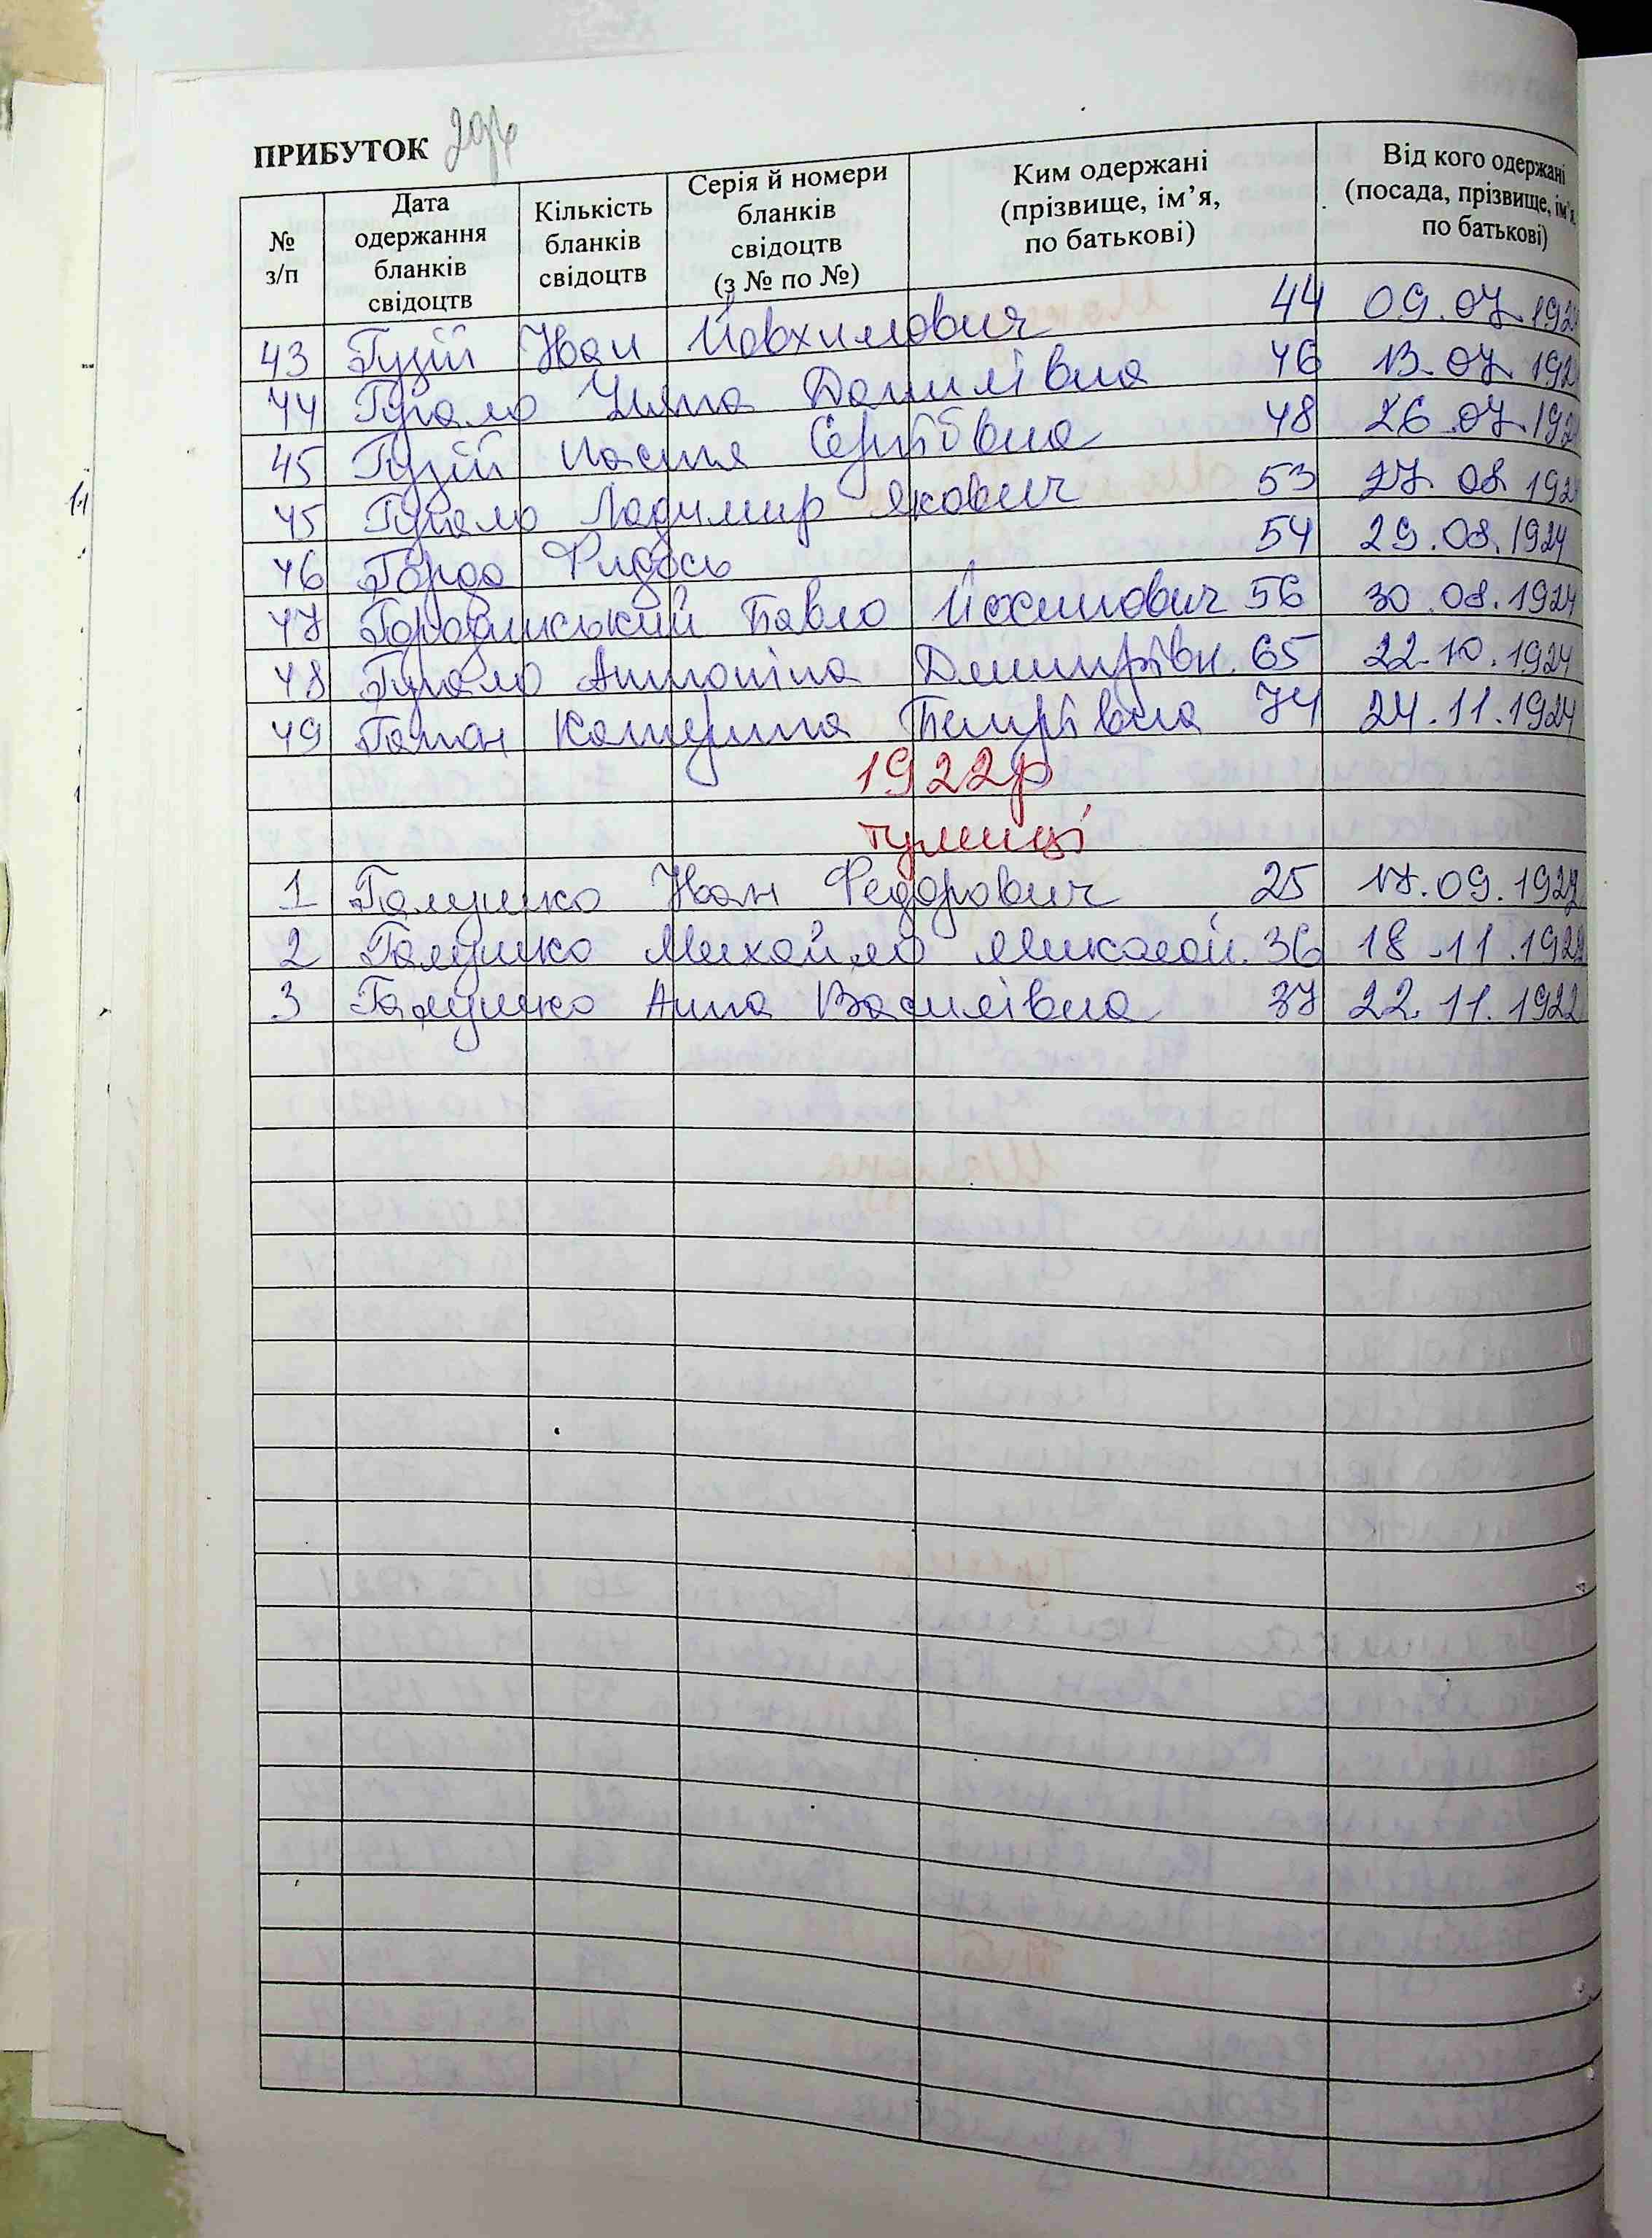 ПРИБУТОК
№ з/п
Дата одержання бланків свідоцтв
Кількість бланків свідоцтв
Серія й номери бланків свідоцтв (з № по №)
Ким одержані (прізвище, ім’я, по батькові)
Від кого одержані (посада, прізвище, ім’я, по батькові)
43 Гузій Іван Йовхимович 44 09.07.192
44 Гупало Уляна Данилівна 46 13.07.192
45 Гузій Настя Сергіївна 48 26.07.192
45 Гупало Ладимир Якович 53 27.08.192
46 Горда Фидось 54 29.08.1924
47 Городинський Павло Йосипович 56 30.08.1924
48 Гупало Антоніна Дмитрівн. 65 22.10.1924
49 Гаман Катерина Петрівна 74 24.11.1924
1922р
Тулинці
1 Галушко Іван Федорович 25 17.09.1922
2 Галушко Михайло Миколай. 36 18.11.1922
3 Галушко Анна Василівна 37 22.11.1922